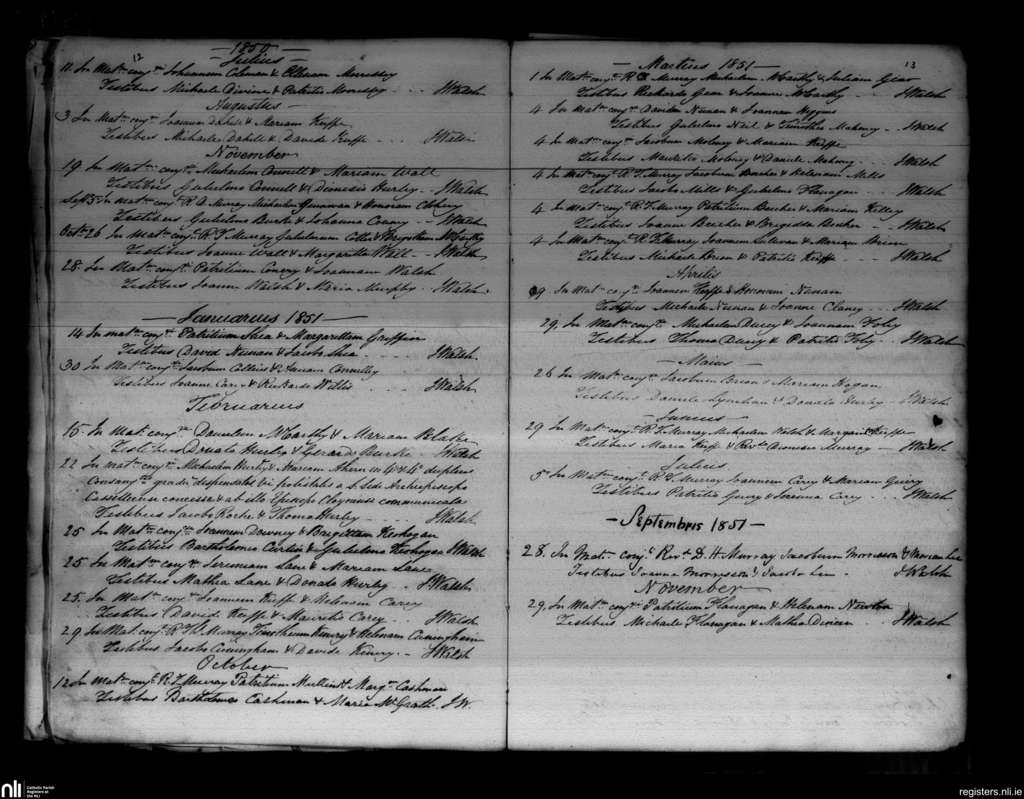 12
1850
Julius
11 In Matm conjt Johannem Coleman & Ellenam Morrissey
Testibus Michaele Divine & Patritio Morrissey J Walsh
Augustus
3 In Matm conjt Joannem Dahill & Mariam Keeffe
Testibus Michaele Dahill & Davide Keeffe J Walsh
November
19. In Matm conjt Michaelem Connell & Mariam Wall
Testibus Gulielmo Connell & Dionisio Hurley J Walsh
Sept 5 In Matm conjt R D. Murray Michaelem & Honoram
Testibus Gulielmo Burke & Johanna J Walsh
Octr 26 In Matm conjt R. J Murray Gulielmum & Brigittam McCarthy
Testibus Joanne Wall & Margaritta Wall J Walsh
28. In Matm conjt Patritium Conroy & Joannam Walsh
Testibus Joanne Walsh & Maria Murphy J Walsh
Januarius 1851
14 In Matm conjt Patritium Shea & Margarittam Griffin
Testibus David Nunan & Jacobo Shea J Walsh
30 In Matm conjt Jacobum Collins & Mariam Connelly
Testibus Joanne & Rickardo Willis J Walsh
Februarius
15 In Matm conjt Danielem McCarthy & Mariam Blake
Testibus Donato Hurley & Gerard Burke J Walsh
22 In Matm conjt Michaelem Hurley & Mariam Ahern in 4o & 4o duplici
Consang: gradu dispensatis vi potestatis a s. sede Archiepiscopo
Cassilience concesse & ab illo Episcopo Cloynensi communicata
Testibus Jacobo Roche & Thoma Hurley J Walsh
25 In Matm conjt Joannem Downey & Brigittam Keohegan
Testibus Bartholomeo Curtin & Gulielmo Keohegan J Walsh
25. In Matm conjt Jeremiam Lane & Mariam Lane
Testibus Mathia Lane & Donato Hurley. J Walsh
25. In Matm conjt Joannem Keeffe & Helenam Carey
Testibus David Keeffe & Mauritio Carey. J Walsh
29 In Mat. conjt R. D. Murray Timotheum Kenry & Helenam Cunningham
Testibus Jacobo Cunningham & Davide Kenry. J Walsh
October
12 In Matm conjt R J Murray Patritium & Margm Cashman
Testibus Bartholomeo Cashman & Maria McGrath. J W.
13
Martius 1851
1 In Matm conjt R D Murray Michaelem McCarthy & Julianam Gear
Testibus Rickardo Gear & Joanne McCarthy J Walsh
4 In Matm conjt Davidem Nunan & Joannam Higgins
Testibus Gulielmo Neil & Timotheo Mahony J Walsh
4 In Matm conjt Jacobum Moloney & Mariam Keeffe
Testibus Mauritio Moloney & Daniele Mahony J Walsh
4 In Matm conjt R. J. Murray Jacobum Beecher & Helenam Mills
Testibus Jacobo Mills & Gulielmo Flanagan J Walsh
4 In Matm conjt R J Murray Patritium Beecher & Mariam Kelley
Testibus Joanne Beecher & Brigidda Beecher J Walsh
4 In Matm conjt R J Murray Joannem Sullivan & Mariam Brien
Testibus Michaele Brien & Patritio Keeffe J Walsh
Aprilis
29 In Matm conjt Joannem Keeffe & Honoram Nunan
Testibus Michaele Nunan & Joanne Clancy J Walsh
29. In Matm conjt Michaelem Ducey & Joannam Foley
Testibus Thoma Ducey & Patritio Foley. J Walsh
Maius
26 In Matm conjt Jacobum Brian & Mariam Hogan
Testibus Daniele Lynehan & Donato Hurley J Walsh
Junius
29 In Matm conjt R. J Murray Michaelem Walsh & Margaritam Keeffe
Testibus Maria Keeffe & Revdo Dionisio Murray J Walsh
Julius
5 In Matm conjt R. J Murray Joannem Carey & Mariam Geary
Testibus Patritio Geary & Joanna Carey J Walsh
Septembris 1851
28. In Matm conjt Revd D. H Murray Jacobum Morrisson & Mariam Lee
Testibus Joanna Morrysson & Jacobo Lee. J Walsh
November
29. In Matm conjt Patritium Flanagan & Helenam Newton
Testibus Michaele Flanagan & Mathia J Walsh
nli
Catholic Parish
Registers at
the NLI
registers.nli.ie